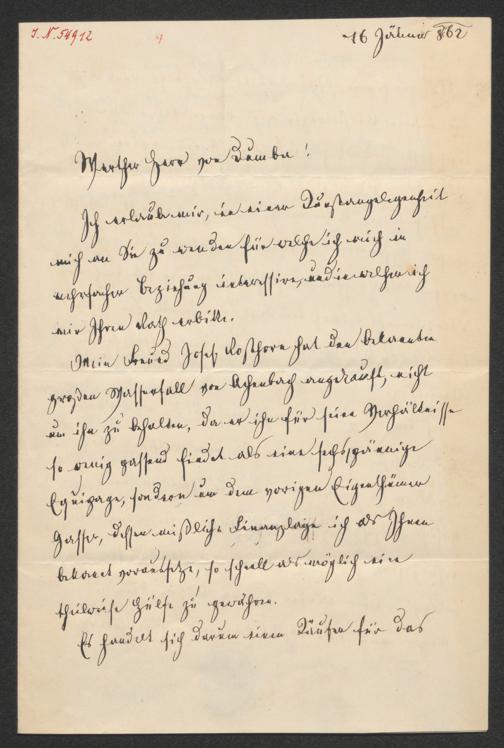 J. N. 54912
16 Jänner 862
Werther Herr von Dumba!
Ich erlaube mir, in einer Kunstangelegenheit
mich an Sie zu wenden für welche ich mich in
mehrfacher Beziehung interessire, und in welcher ich
mir Ihren Rath erbitte.
Mein Freund Josef Rosthorn hat den bekannten
großen Wasserfall von Achenbach angekauft, nicht
um ihn zu behalten, da er ihn für seine Verhältnisse
so wenig passend findet als eine sechsspännige
Equipage, sondern um dem vorigen Eigenthümer
Gasser, dessen mißliche Finanzlage ich als Ihnen
bekannt voraussetze, so schnell als möglich eine
theilweise Hülfe zu gewähren.
Es handelt sich darum einen Käufer für das